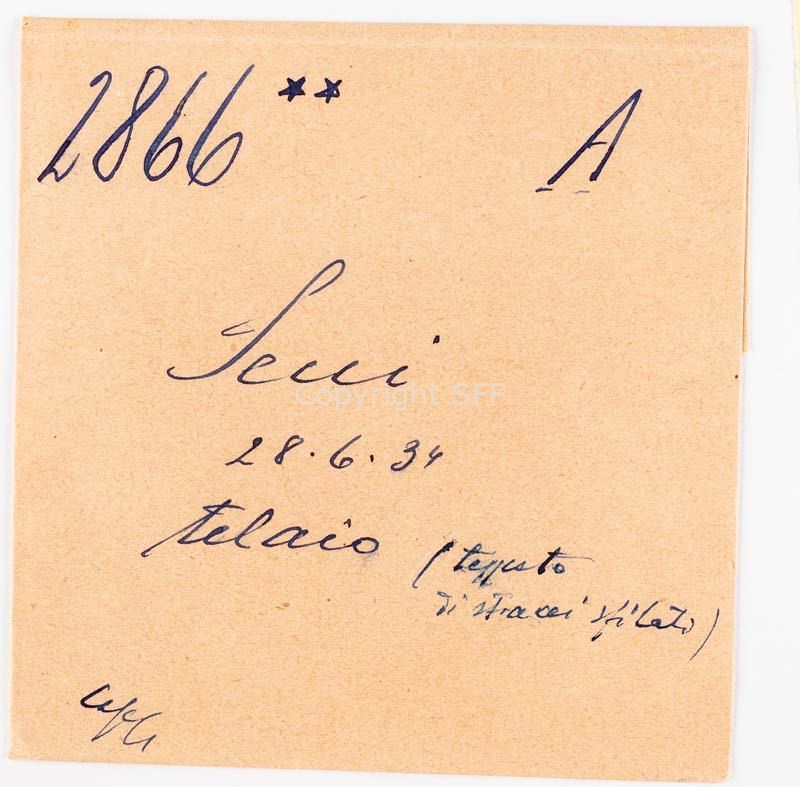 2866 ** A
Seui
Copyright SFF
28.6.34
telaio (tessuto
di stracci sfilato)